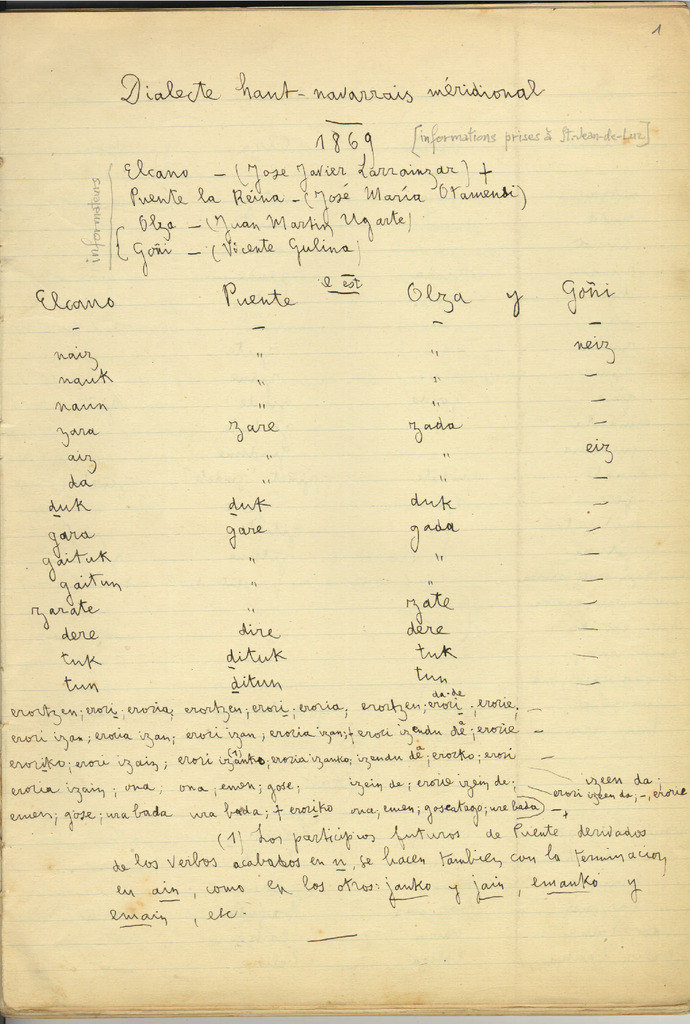 1
Dialecte haut-navarrais méridional
1869 [informations prises à St. Jean-de-Luz]
informateurs
Elcano - (Jose Javier Larrainzar) +
Puente la Reina - (José María Otamendi)
Olza - (Juan Martin Ugarte)
Goñi - (Vicente Gulina)
e est
Elcano Puente Olza y Goñi
naiz " " neiz
nauk " " -
naun " " -
zara zare zada -
aiz " " eiz
da " "
duk duk duk -
gara gare gada -
gaituk " " -
gaitun " " -
zarate " zate -
dere dire dere -
tuk dituk tuk -
tun ditun tun -
erortzen; erori; eroria; erortzen; erori; eroria; erortzen; erori da-de; erorie; -
erori izan; eroria izan; erori izan; eroria izan; + erori izendu de a; erorie -
eroriko; erori izain; erori izanko (1); eroria izanko; izendu de a; erorko; erori -
eroria izain; ona; ona; emen; gose; izein de; erorie izein de; izeen da;
erori izeen da, -, erorie
emen; gose; ura bada ura bada; + eroriko ona, emen; goseatago; ure bada) -+
(1) Los participios futuros de Puente derivados
de los verbos acabados en n, se hacen tambien con la terminacion
en ain, como en los otros: janko y jain, emanko y
emain, etc.